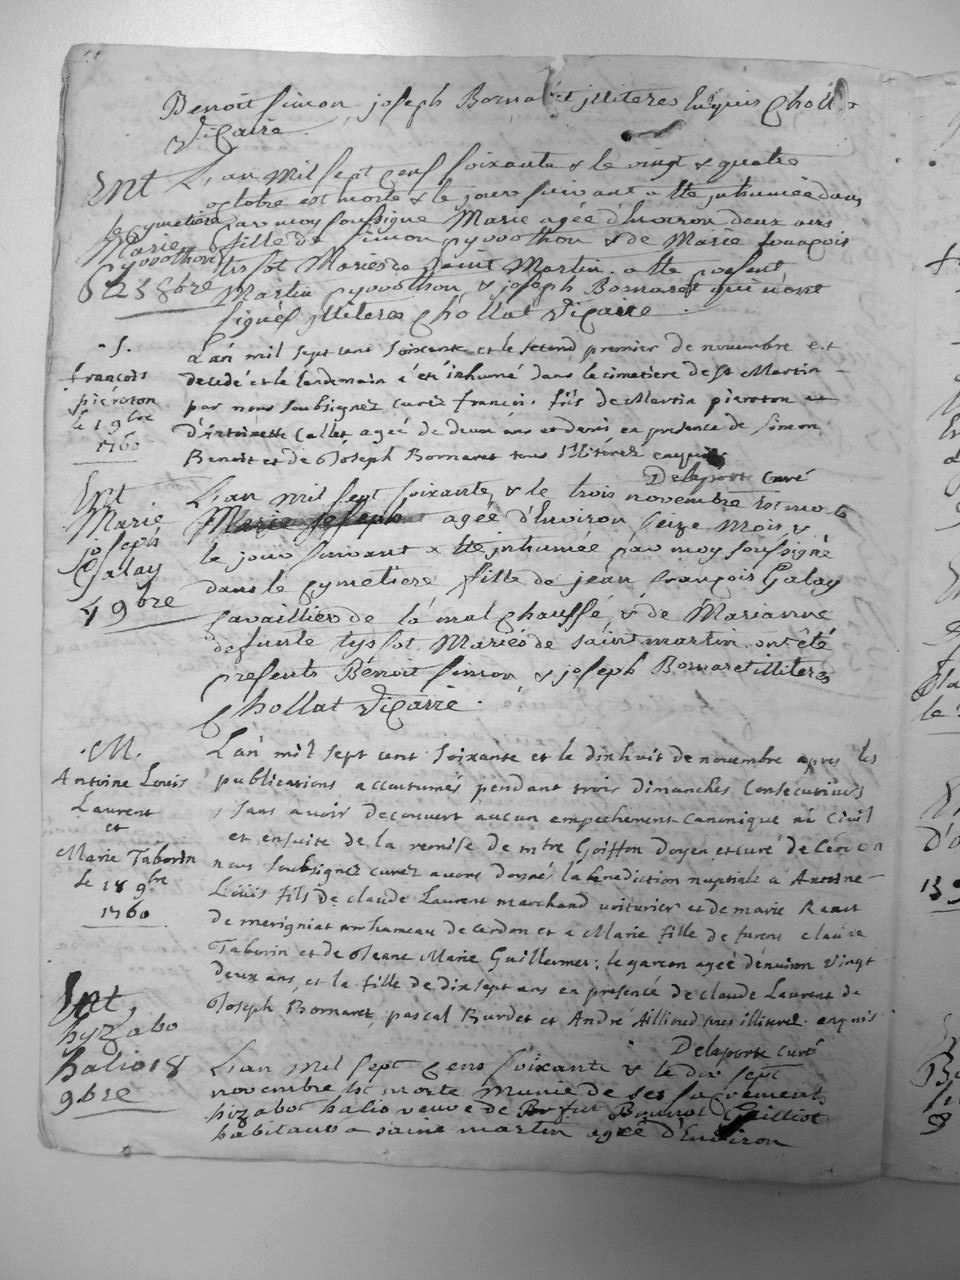 Benoit Simon, joseph Bornaret jlliteres Enquis Chollat
Vicaire
Ent
le cymetiere
Marie
cyvothon
Le 25 8bre
L'an Mil sept cens soixante & le vingt & quatre
octobre est morte & le jour suivant a ete jnhumée dans
par moy soussigne Marie agée d'Environ deux ans
fille de simon cyvothon & de Marie françois
tissot Mariés de saint Martin. a ete present
Martin cyvothon & joseph Bornaret qui n'ont
signés jlliteres Chollat Vicaire.
S.
françois
pieroton
le 1 9bre
1760
L'an mil sept cent soixante et le second premier de novembre est
decedé et le lendemain a été inhumé dans le cimetiere de St Martin
par nous soubsignez curez francois fils de Martin pieroton et
d'Antoinette Callet ageé de deux ans et demi en presence de Simon
Benoit et de Joseph Bornaret tous illiterez enquis
Delaporte curé
Ent
Marie
joseph
Galay
4 9bre
L'an mil sept soixante, & le trois novembre Est morte
Marie joseph agée d'Environ seize mois &
le jour suivant a ete jnhumée par moy soussigné
dans le cymetiere fille de jean françois Galay
Cavaillier de la mal chaussé, & de Marianne
defunte tyssot Mariés de saint martin ont été
presents Bénoit simon & joseph Bornaret illiteres
Chollat Vicaire.
.M.
Antoine Louis
Laurent
et
Marie Taborin
le 18 9bre
1760
L'an mil sept cent soixante et le dixhuit de novembre apres les
publications accoutumés pendant trois dimanches consecutives
sans avoir decouvert aucun empechement canonique ni civil
et ensuite de la remise de mtre Goiffon Doyen et curé de
nous soubsignez curez avons donné la benediction nuptiale a Antoine
Louis fils de claude Laurent marchand voiturier et de marie
de merigniat hameau de cerdon et a Marie fille de claude
Taborin et de Jeane Marie Guillermet; le garcon ageé d'environ vingt
deux ans, et la fille de dix sept ans en presence de claude Laurent de
Joseph Bornaret, pascal Burdet et André Aillioud tous illiterez enquis
Delaporte curé
Ent,
hyzabo
balio 18
9bre
L'an Mil sept cens soixante & le dix sept
novembre Est morte Munie de ses sacrements
hizabot balio veuve de
habitant a saint martin agée d'Environ